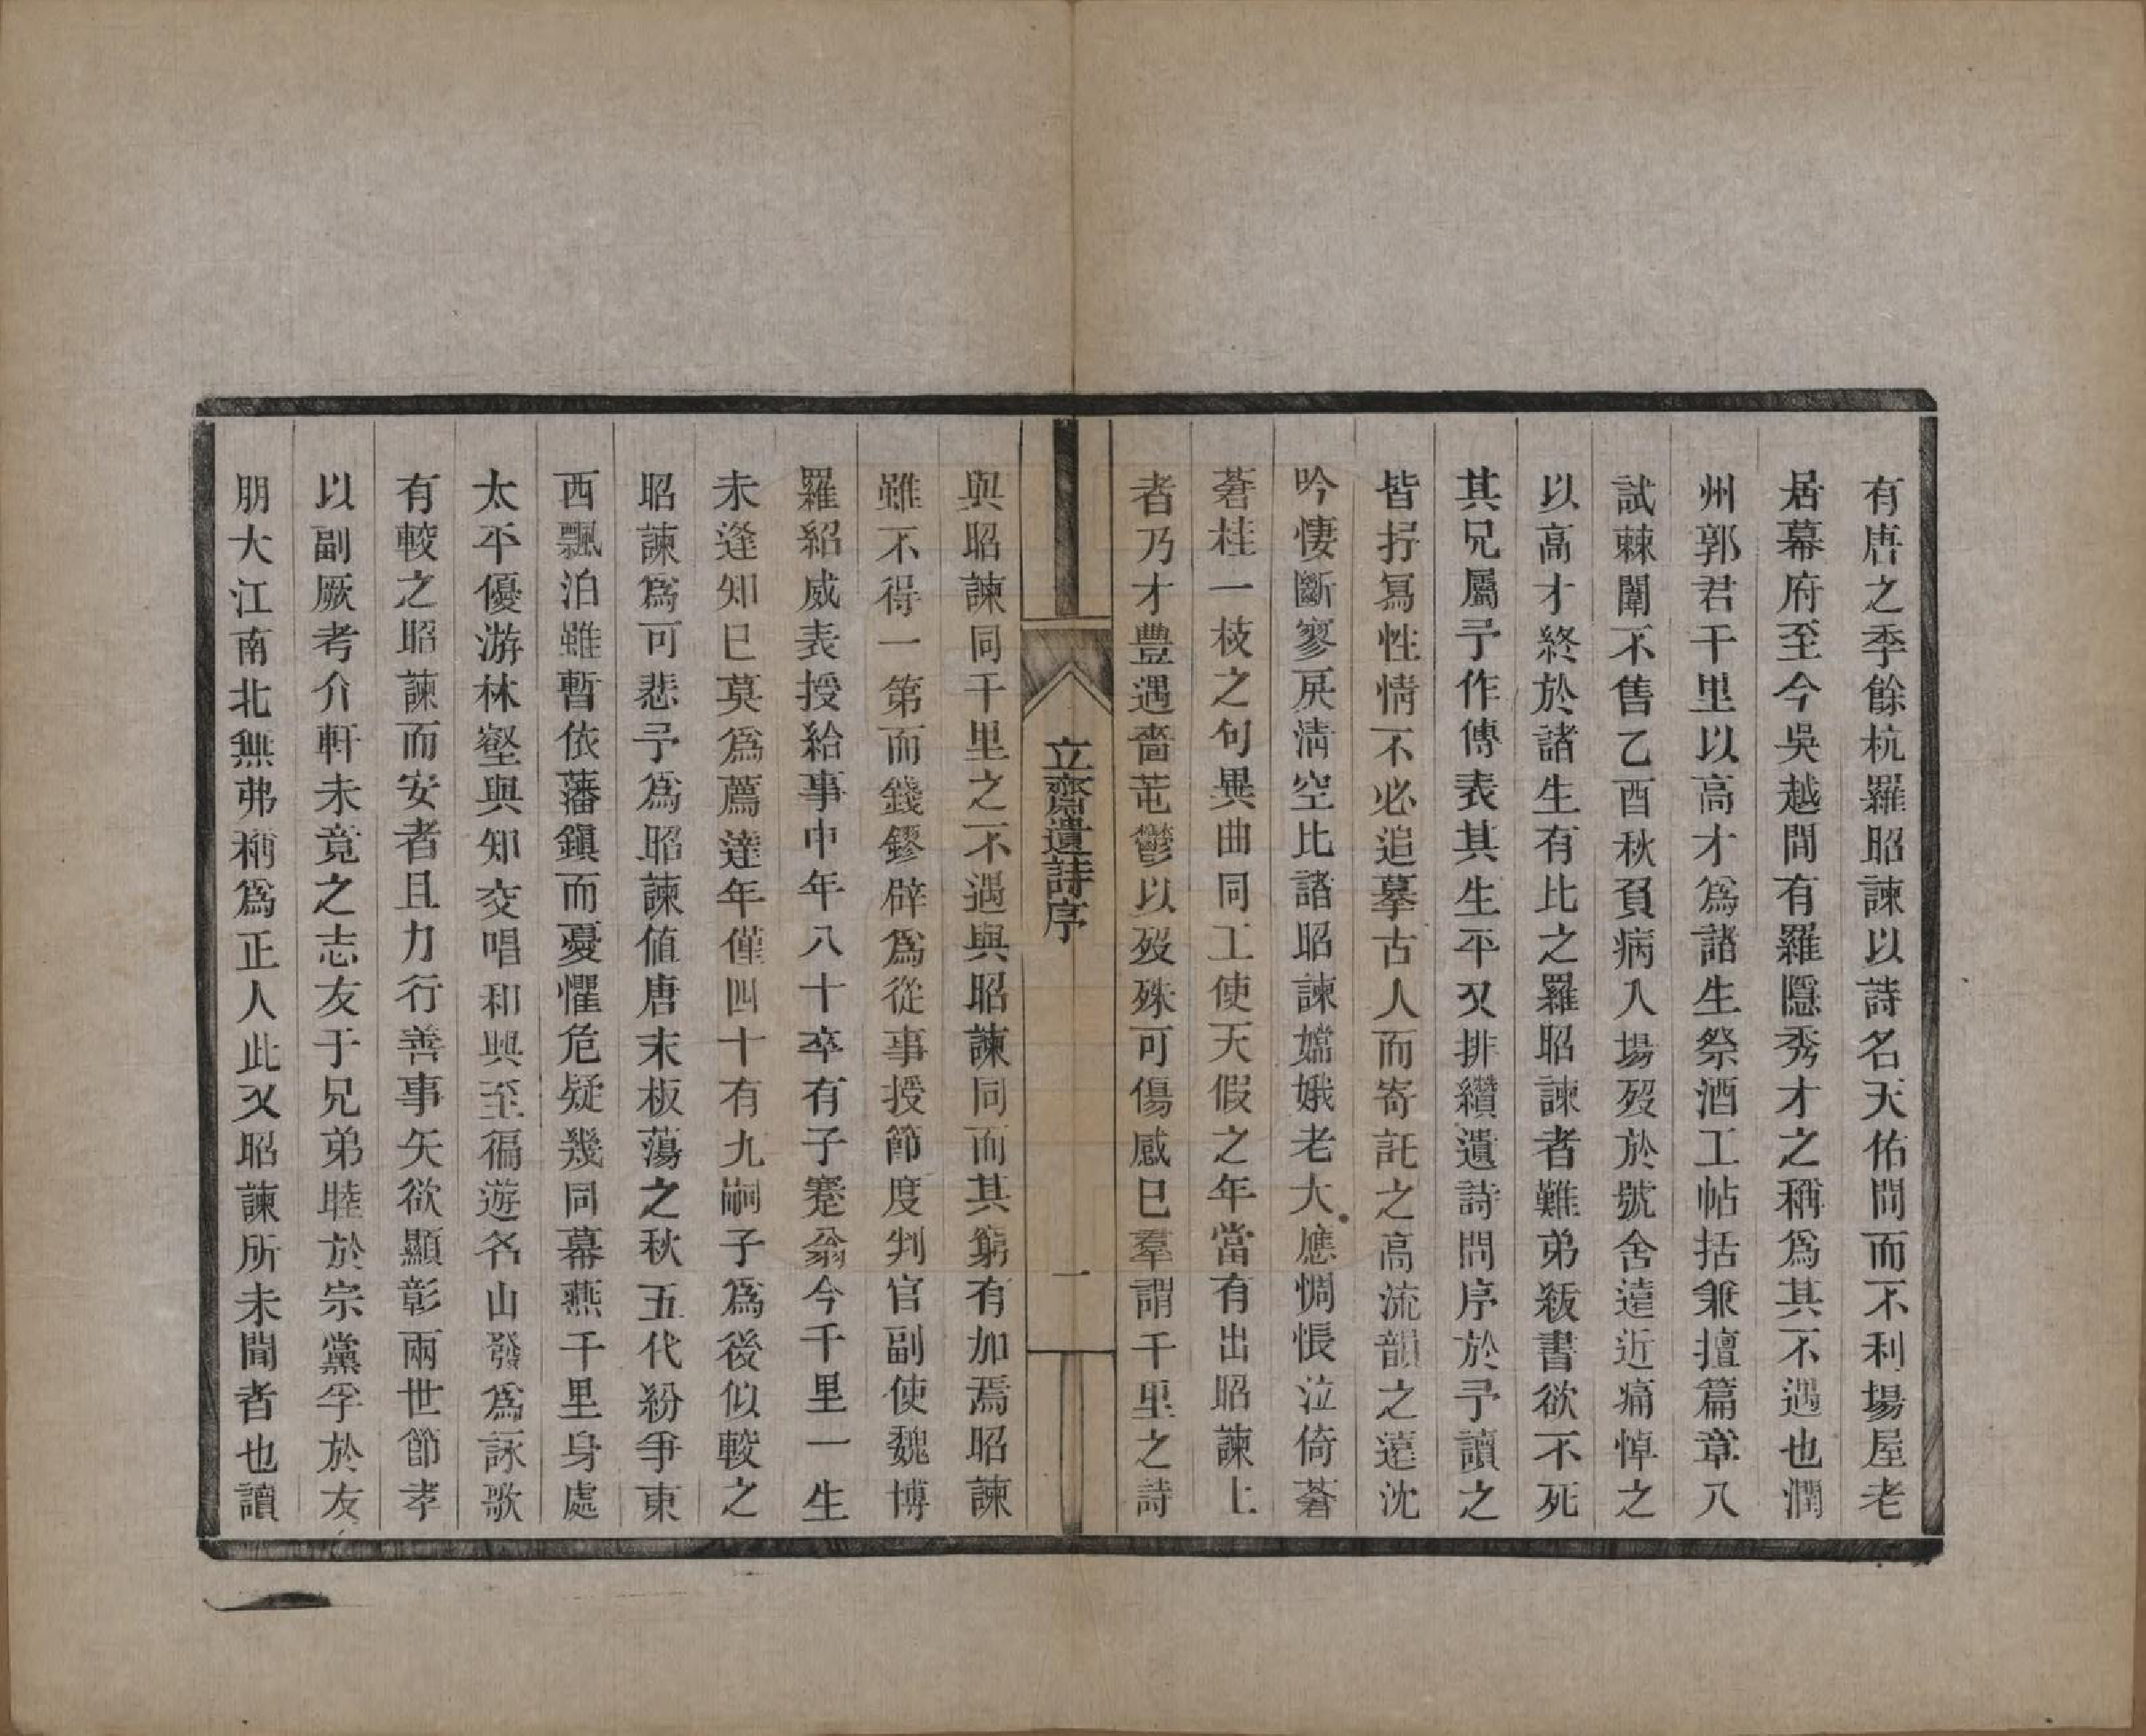 有唐之季餘杭羅昭諫以詩名天佑間而不利場屋老
居幕府至今吳越間有羅隱秀才之稱為其不遇也潤
州郭君千里以高才為諸生祭酒工帖括兼擅篇章八
試棘闈不售乙酉秋負病入場歿於號舍遠近痛悼之
以高才終於諸生有比之羅昭諫者難弟級書欲不死
其兄屬予作傳表其生平又排纘遺詩問序於予讀之
皆抒寫性情不必追摹古人而寄託之高流韻之遠沈
吟悽斷寥戾淸空比諸昭諫嫦娥老大應惆悵泣倚蒼
蒼桂一枝之句異曲同工使天假之年當有出昭諫上
者乃才豐遇嗇菀鬱以歿殊可傷感已羣謂千里之詩
立齋遺詩序
一
與昭諫同千里之不遇與昭諫同而其窮有加焉昭諫
雖不得一第而錢鏐辟為從事授節度判官副使魏博
羅紹威表授給事中年八十卒有子蹇翁今千里一生
未逢知己莫為薦達年僅四十有九嗣子為後似較之
昭諫為可悲予為昭諫値唐末板蕩之秋五代紛爭東
西飄泊雖暫依藩鎭而憂懼危疑幾同幕燕千里身處
太平優游林壑與知交唱和興至徧遊名山發為詠歌
有較之昭諫而安者且力行善事矢欲顯彰兩世節孝
以副厥考介軒未竟之志友于兄弟睦於宗黨孚於友
朋大江南北無弗稱為正人此又昭諫所未聞者也讀